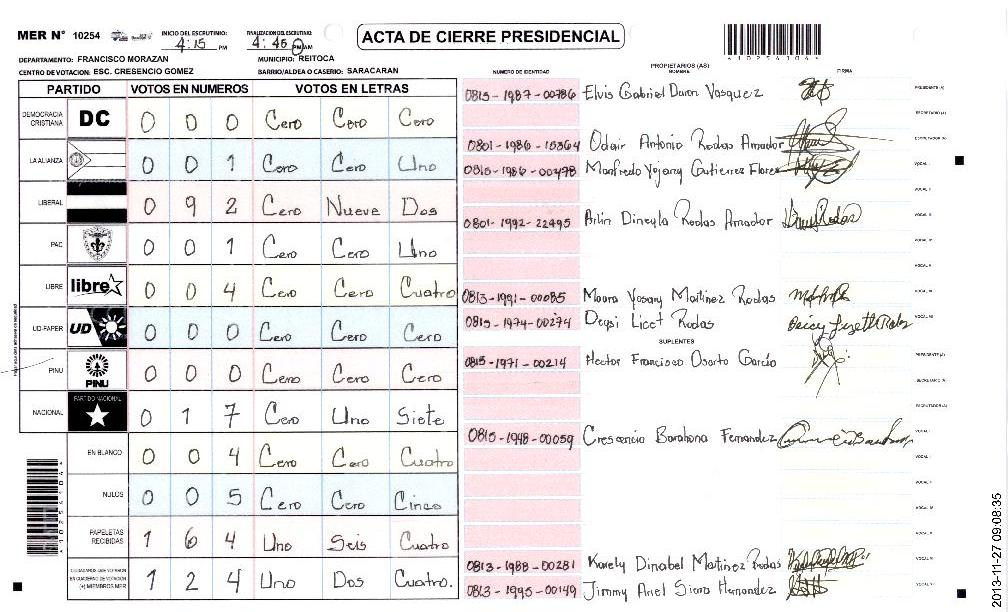 MER N° 10254 INICIO DEL ESCRUTINIO: 4:15 PM FINALIZACION DEL ESCRUTINIO: 4:45 PM AM
ACTA DE CIERRE PRESIDENCIAL
DEPARTAMENTO: FRANCISCO MORAZAN MUNICIPIO: REITOCA
CENTRO DE VOTACION: ESC. CRESENCIO GOMEZ BARRIO/ALDEA O CASERIO: SARACARAN
PARTIDO VOTOS EN NUMEROS VOTOS EN LETRAS
DEMOCRACIA CRISTIANA DC 0 0 0 Cero Cero Cero
LA ALIANZA 0 0 1 Cero Cero Uno
LIBERAL 0 9 2 Cero Nueve Dos
PAC 0 0 1 Cero Cero Uno
LIBRE libre 0 0 4 Cero Cero Cuatro
UD-FAPER UD 0 0 0 Cero Cero Cero
PINU PINU 0 0 0 Cero Cero Cero
NACIONAL PARTIDO NACIONAL 0 1 7 Cero Uno Siete
EN BLANCO 0 0 4 Cero Cero Cuatro
NULOS 0 0 5 Cero Cero Cinco
PAPELETAS RECIBIDAS 1 6 4 Uno Seis Cuatro
CIUDADANOS QUE VOTARON EN CUADERNO DE VOTACION (+) MIEMBROS MER 1 2 4 Uno Dos Cuatro.
NUMERO DE IDENTIDAD PROPIETARIOS (AS) NOMBRE FIRMA
0815-1987-00786 Elvis Gabriel Duron Vasquez PRESIDENTE (A)
SECRETARIO (A)
0801-1986-15364 Odair Antonio Rodas Amador ESCRUTADOR (A)
0815-1986-00278 Manfredo Yojany Gutierrez Flores VOCAL I
VOCAL II
0801-1992-22495 Arlin Dineyla Rodas Amador VOCAL III
VOCAL IV
VOCAL V
0813-1991-00085 Maura Yosany Martinez Rodas VOCAL VI
0815-1974-00274 Deysi Licet Rodas VOCAL VII
SUPLENTES
0815-1971-00214 Hector Francisco Osorto Garcia PRESIDENTE (A)
SECRETARIO (A)
ESCRUTADOR (A)
0815-1948-00059 Crescencio Barahona Fernandez VOCAL I
VOCAL II
0813-1988-00281 Karely Dinabel Martinez Rodas
0813-1995-00149 Jimmy Ariel Sierra Hernandez
2013-11-27 09:08:35